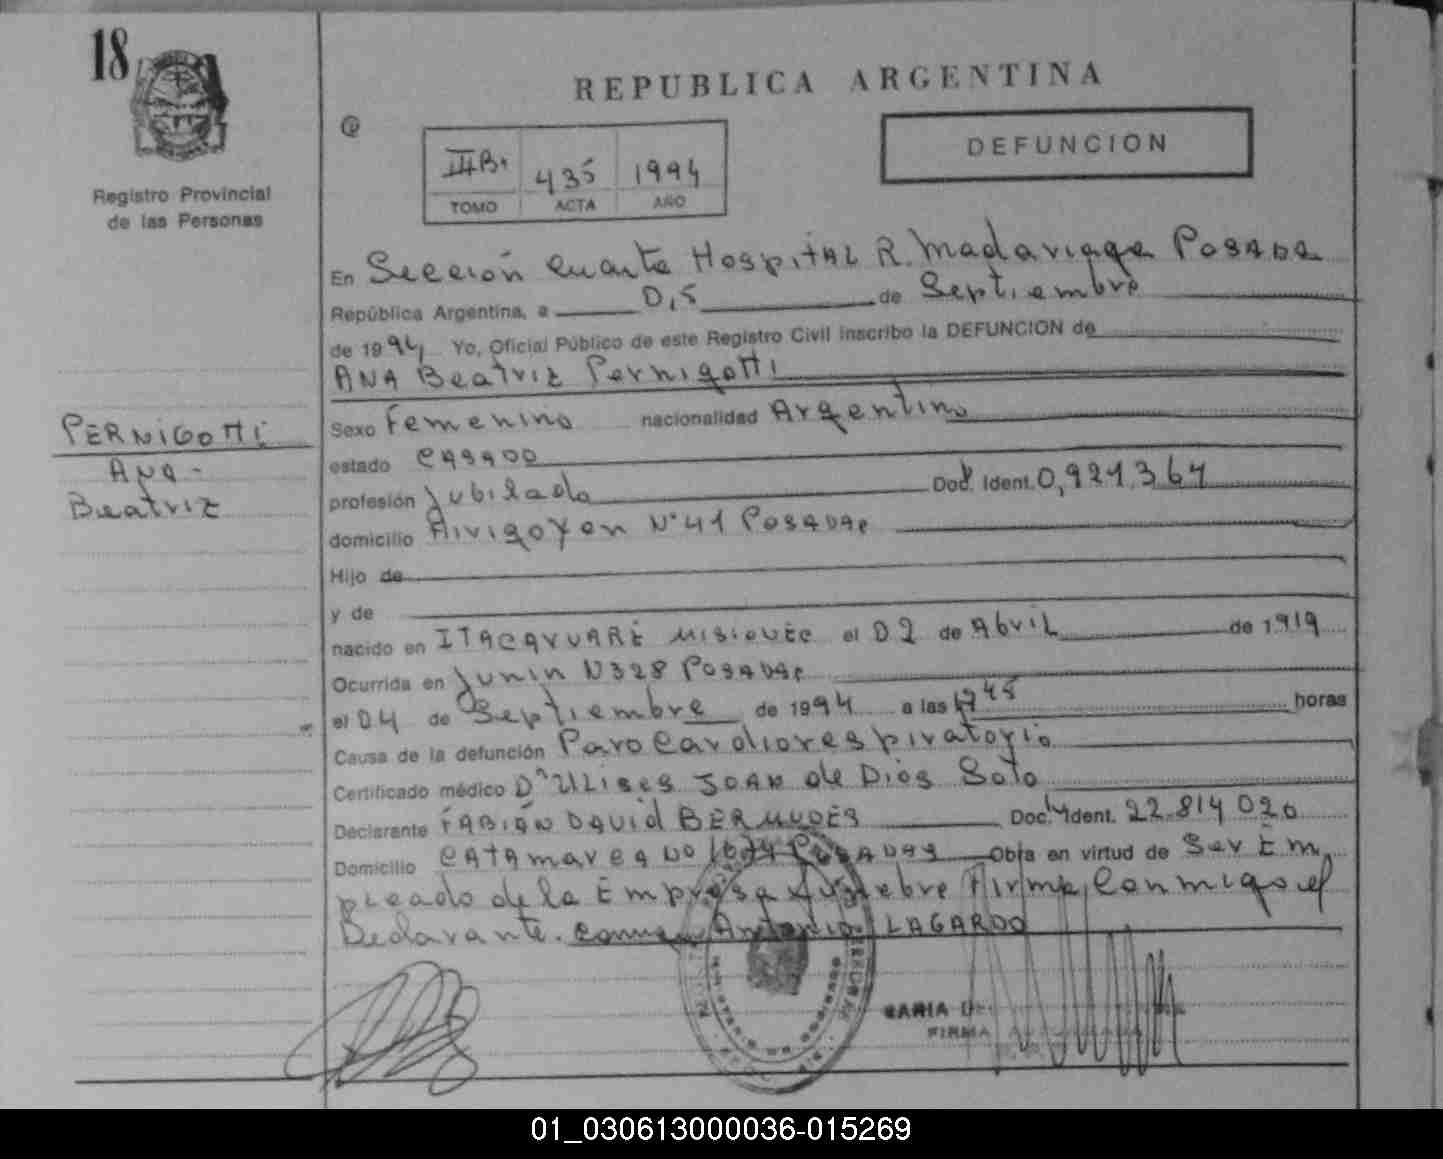 18
REPUBLICA ARGENTINA
DEFUNCION
435 1994
TOMO ACTA AÑO
Registro Provincial
de las Personas
En Sección Cuarta Hospital R. Madariaga POSADAS
República Argentina, a 05 de Septiembre
de 1994 Yo, Oficial Público de este Registro Civil inscribo la DEFUNCION de
ANA Beatriz Pernigotti
PERNIGOTTI
ANA-
Beatriz
Sexo Femenino nacionalidad Argentina
estado CASADO
profesión Jubilada Doc. Ident. 0,921,364
domicilio N° 41 POSADAS
Hijo de
y de
nacido en ITACARUARÉ MISIONES el 02 de Abril de 1919
Ocurrida en Junin N 328 POSADAS
el 04 de Septiembre de 1994 a las horas
Causa de la defunción Paro Cardiorespiratorio
Certificado médico Dr ULises JOAN de Dios Soto
Declarante FABIÁN DAVID BERMUDES Doc. Ident. 22.814 020
Domicilio CATAmarca NO POSADAS Obra en virtud de Ser Em
pleado de la Empresa Funebre Firma Conmigo el
Declarante. Antonio LAGARDO
FIRMA
01_030613000036-015269